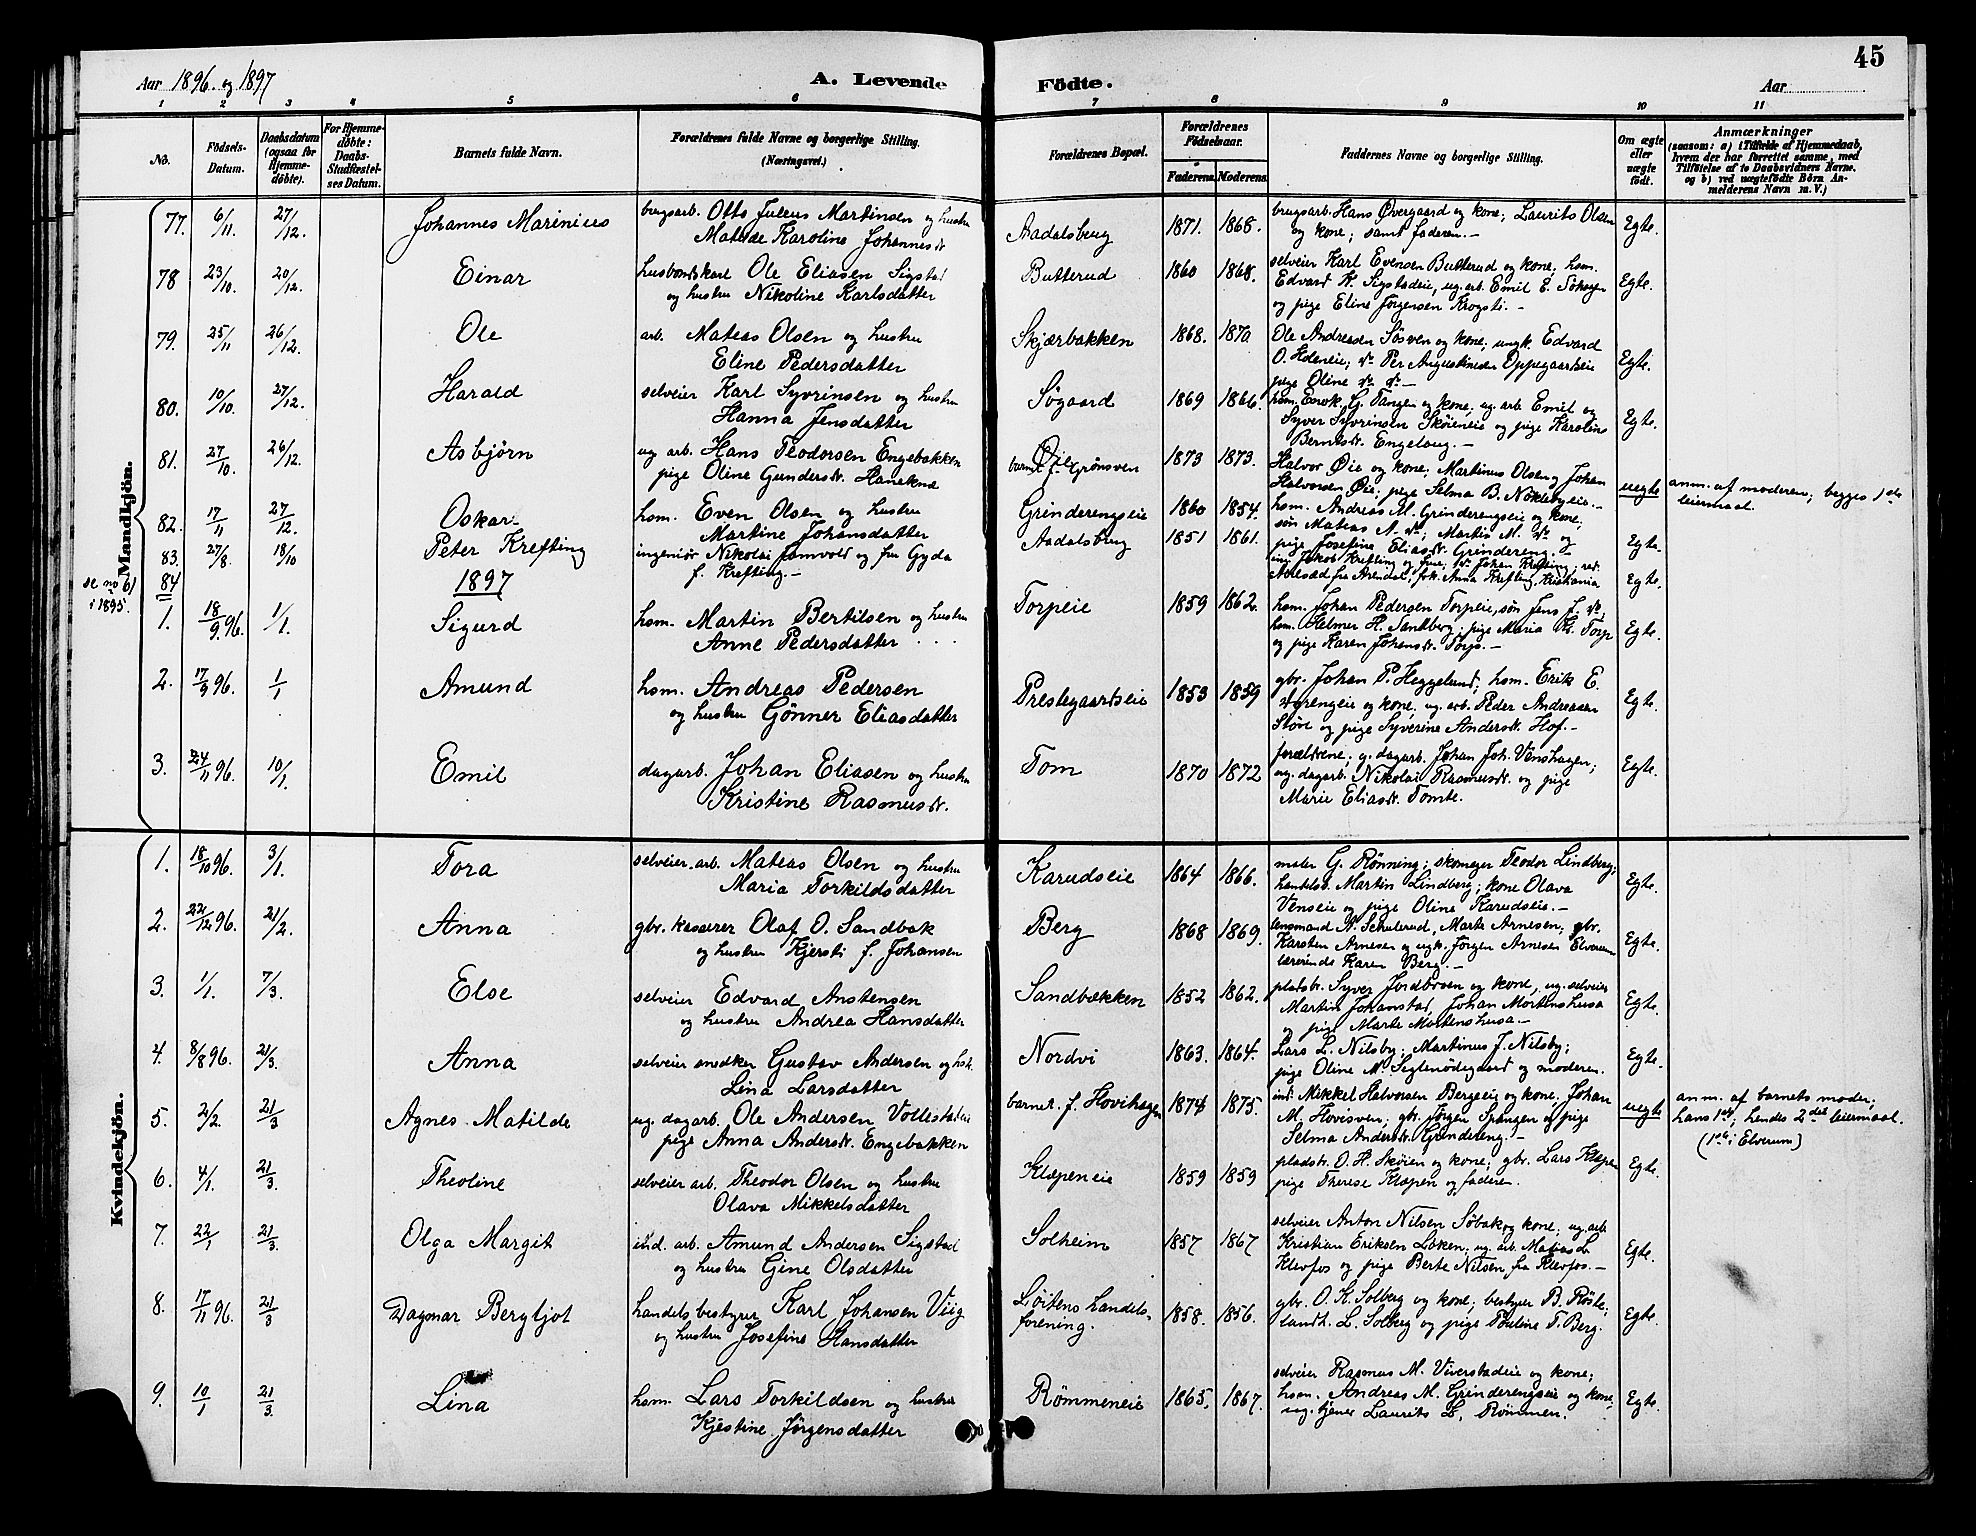 45
Aar 1896. og 1897
A. Levende
Födte.
Aar
1 2 3 4 5 6 7 8 9 10 11
No.
Födsels-Datum.
Daabsdatum (ogsaa for Hjemmedöbte).
For Hjemmedöbte: Daabs-Stadfæstelses Datum.
Barnets fulde Navn.
Forældrenes fulde Navne og borgerlige Stilling. (Næringsvei.)
Forældrenes Bopæl.
Forældrenes Födselsaar.
Faderens.
Moderens.
Faddernes Navne og borgerlige Stilling.
Om ægte eller uægte födt.
Anmærkninger (saasom: a) i Tilfælde af Hjemmedaab, hvem der har forrettet samme, med Tilföielse af to Daabsvidners Navne, og b) ved uægtefödte Börn Anmelderens Navn m. V.)
Mandkjön.
77. 6/11. 27/12. Johannes Marinius brugsarb. Otto Julius Martinsen og hustru Aadalsbrug 1871. 1868. brugsarb. Hans Øvergaard og kone; Laurits Olsen Egte.
Matilde Karoline Johannesdr. og kone; samt faderen.-
78 23/10. 20/12. Einar husbondskarl Ole Eliasen Sigstad Butterud 1860 1868. selveier Karl Evensen Butterud og kone; hsm. Egte.
og hustru Nikoline Karlsdatter Edvard K. Sigstadeie, ug. arb. Emil E.
og pige Eline Jørgensen Krogsti.-
79. 25/11 26/12. Ole arb. Mateas Olsen og hustru Skjærbakken 1868. 1870 Ole Andreasen Søsven og kone; ungk. Edvard Egte.
Eline Pedersdatter O. Hdeneie; do Per Augustinsen Oppegaardseie
pige Oline do do.-
80. 10/10. 27/12. Harald selveier Karl Syvrinsen og hustru Søgaard 1869 1866. hsm. G. Tangen og kone; ug. arb. Emil og Egte.
Hanna Jensdatter Syver Syvrinsen Skøieneie og pige Karoline
Berntsdr. Engelaug.-
81. 27/10. 26/12. Asbjørn ug arb. Hans Teodorsen Engebakken Øie 1873 1873. Halvor Øie og kone; Martinus Olsen og Johan uegte anm. af moderen; begges 1ste
pige Oline Gundersdr. Haneknæ barnet f. Grønsven Halvorsen Øie; pige Selma B. Nøklebyeie.- leiermaal.
82. 17/11 27/12. Oskar hsm. Even Olsen og hustru Grinderengseie 1860 1854. hsm. Andreas M. Grinderengseie og kone;
Martine Johansdatter søn Mateas A. do; Martis M. do og Egte.
pige Josefine Eliasdr. Grindereng.-
83. 27/8. 18/10 Peter Krefting ingeniör Nikolai Jamvold og fru Gyda Aadalsbrug 1851 1861. ing. Jakob Krefting og frue; do Johan Krefting; red.
f. Krefting.- fra Arendal; frk. Anna Krefting, Kristiania Egte.
84 se no 61 i 1895.
1897
1. 18/9.96. 1/1. Sigurd hsm. Martin Bertilsen og hustru Torpeie 1859 1862. hsm. Johan Pedersen Torpeie, søn Jens J. do; Egte.
Anne Pedersdatter hsm. Helmer H. Sandberg; pige Maria K. Torp
og pige Karen Johansdr. Torp.-
2. 17/9 96. 1/1 Amund hsm. Andreas Pedersen Prestegaardseie 1853 1859 gbr. Johan P. Heggelund; hsm. Erik E. Egte.
og hustru Gönner Eliasdatter og kone, ug. arb. Peder Andreasen
Støre og pige Syverine Andersdr. Hof.-
3. 24/11 96. 10/1. Emil dagarb. Johan Eliasen og hustru Tom 1870 1872 forældrene; g. dagarb. Johan Joh. Venshagen; Egte.
Kristine Rasmusdr. ug. dagarb. Nikolai Rasmusdr. og pige
Marie Eliasdr. Tomte.
Kvindekjön.
1. 18/10 96. 3/1. Tora selveier. arb. Mateas Olsen og hustru Karudseie 1864 1866. maler G. Rønning; skomager Teodor Lindberg; Egte.
Maria Torkildsdatter handelsb. Martin Lindberg; kone Olava
Venseie og pige Oline Karudseie.-
2. 22/12 96. 21/2. Anna gbr. kasserer Olaf O. Sandbak Berg 1868 1869. lensmand N. Schulerud, Marte Arnesen; gbr. Egte.
og hustru Kjersti f. Johansen Karsten Arnesen og ugk. Jörgen Arnesen Elverum
lærerinde Karen Berg.-
3. 1/1. 7/3. Else selveier Edvard Anstensen Sandbækken 1852 1862. pladsbr. Syver Jordbrsen og kone, ug. selveier Egte.
og hustru Andrea Hansdatter Martin Johanstad, Johan Mortenshusa
og pige Marte Mortenshusa.-
4. 8/8 96. 21/3. Anna selveier snedker Gustav Andersen og hst. Nordvi 1863. 1864. Lars L. Nilsby; Martinus J. Nilsby; Egte.
Lina Larsdatter pige Oline M. Siglenödegaard og moderen.
5. 2/2. 21/3 Agnes Matilde ug. dagarb. Ole Andersen Voldstadeie barnet. f. Hovihagen 1874 1875. ind. Mikkel Halvorsen Bergseie og kone, Johan uegte anm. af barnets moder;
pige Anna Andersdr. Engebakken M. Hovisven, gbr. Jørgen Spangen og pige hans 1ste; hendes 2det leiermaal.
Selma Andersdr. Grindereng.- (1ste i Elverum)
6. 4/1. 21/3. Theoline selveier arb. Theodor Olsen og hustru Klæpeneie 1859 1859 pladsbr. O. H. Skøien og kone; gbr. Lars Klæpen Egte.
Olava Mikkelsdatter pige Therese Klæpen og faderen.
7. 22/1 21/3. Olga Margit ind. arb. Amund Andersen Sigstad Solheim 1857 1867 selveier Anton Nilsen Søbak og kone; ug. arb Egte.
og hustru Gine Olsdatter Kristian Eriksen Løken; ug. arb. Matias L.
Klevfos og pige Berte Nilsen, fra Klevfos.-
8. 17/11 96. 21/3 Dagmar Bergljot handelsbestyrer Karl Johansen Viig Løitens handels- 1858. 1856. gbr. O. K. Solberg og kone; bestyrer B. Röste; Egte.
og hustru Josefine Hansdatter forening. landh. L. Solberg og pige Pauline T. Berg.
9. 10/1 21/3. Lina hsm. Lars Torkildsen og hustru Rømmeneie 1865. 1867. selveier Rasmus M. Viverstadeie og kone; Egte.
Kjestine Jørgensdatter hsm. Andreas M. Grinderengseie og kone;
ug. tjener Laurits L. Rømmen.